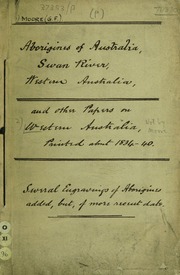 MOORE (G.F.)
(A)
Aborigines of Australia,
Swan River,
Western Australia,
and other Papers on
Western Australia,
Printed about 1834-40.
Several Engravings of Aborigines
added, but, of more recent date.